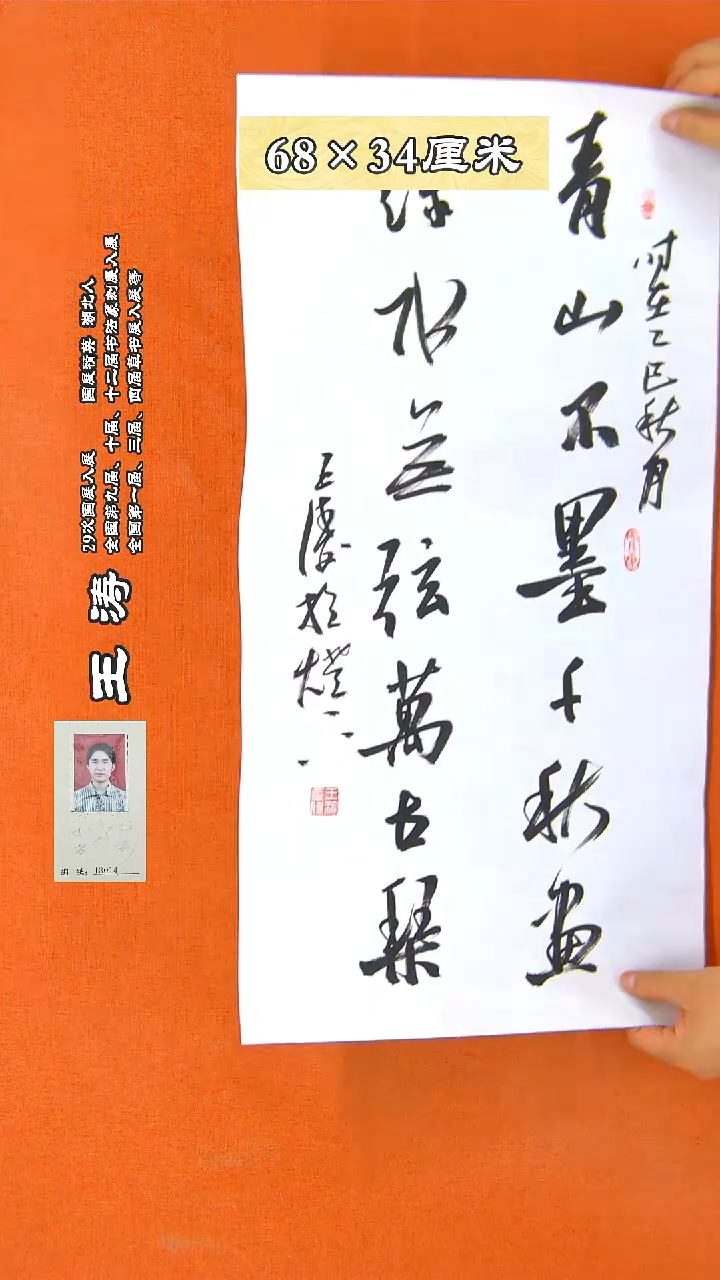 68×34厘米
时在乙巳秋月
青山不墨千秋画
绿水无弦萬古琴
王涛於燈下
王涛
29次国展入展 国展精英 湖北人
全国第九届、十届、十二届书法篆刻展入展
全国第一届、三届、四届草书展入展等